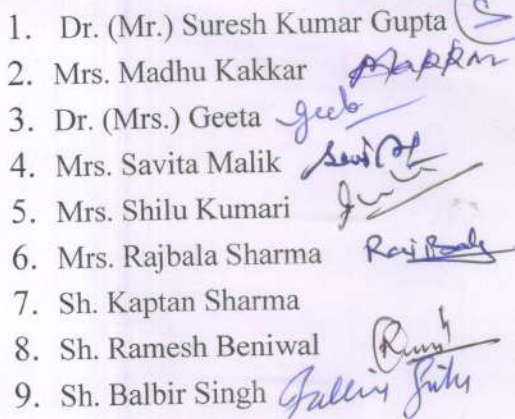 1. Dr. (Mr.) Suresh Kumar Gupta
2. Mrs. Madhu Kakkar
3. Dr. (Mrs.) Geeta
4. Mrs. Savita Malik
5. Mrs. Shilu Kumari
6. Mrs. Rajbala Sharma
7. Sh. Kaptan Sharma
8. Sh. Ramesh Beniwal
9. Sh. Balbir Singh